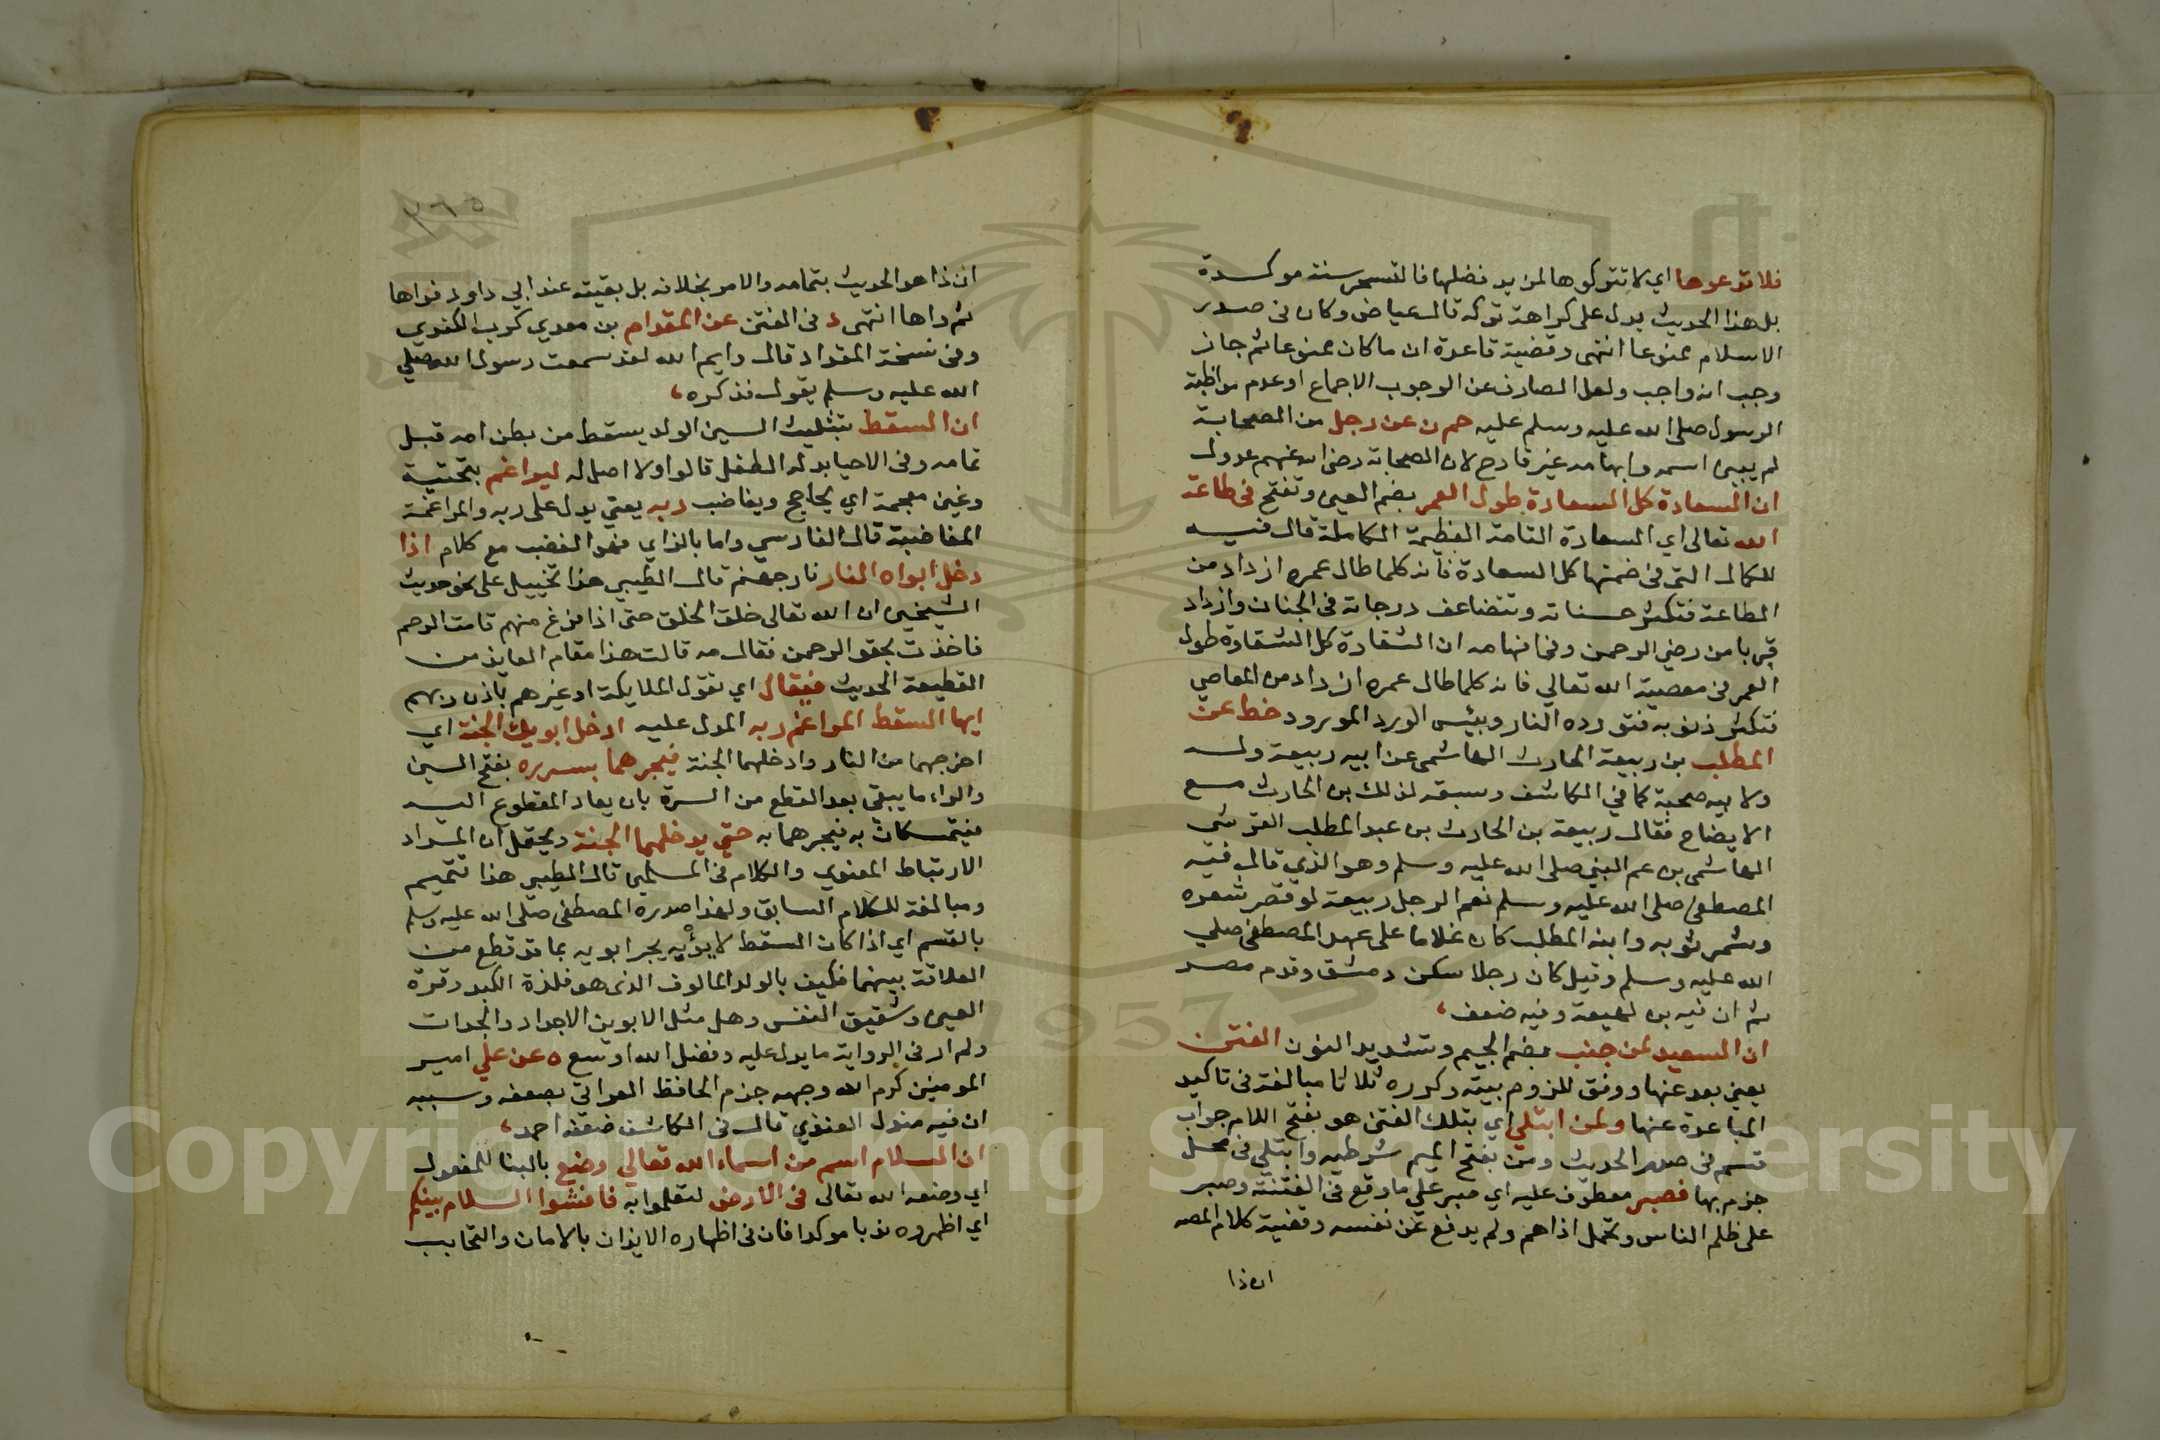 فلا تدعوها اي لا تتركوها لمزيد فضلها فالتسحر سنة موكدة
بل هذا الحديث يدل على كراهة تركه قال عياض وكان في صدر
الاسلام ممنوعا انتهى وقضية قاعدة ان ما كان ممنوعا ثم جاز
وجب انه واجب ولعل الصارف عن الوجوب الاجماع او عدم مواظبة
الرسول صلى الله عليه وسلم عليه حم ن عن رجل من الصحابة
لم يبين اسمه وابهامه غير قادح لان الصحابة رضي الله عنهم عدول
ان السعادة كل السعادة طول العمر بضم العين وتفتح في طاعة
الله تعالى اي السعادة التامة العظيمة الكاملة قال فيه
للكمال التي في ضمنها كل السعادة فانه كلما طال عمره ازداد من
الطاعة فتكثر حسناته وتتضاعف درجاته في الجنان وازداد
قربا من رضي الرحمن وفي افهامه ان الشقاوة كل الشقاوة طول
العمر في معصية الله تعالي فانه كلما طال عمره ازداد من المعاصي
فتكثر ذنوبه فتورده النار وبيئس الورد المورود خط عن
المطلب بن ربيعة الحارث الهاشمي عن ابيه ربيعة وله
ولابيه صحبة كما في الكاشف وسبقه لذلك بن الحارث مع
الايضاح فقال ربيعة بن الحارث بن عبد المطلب القرشي
الهاشمي بن عم النبي صلى الله عليه وسلم وهو الذي قال فيه
المصطفى صلى الله عليه وسلم نعم الرجل ربيعة لو قصر شعره
وشمر ثوبه وابنه المطلب كان غلاما على عهد المصطفى صلي
الله عليه وسلم وقيل كان رجلا سكن دمشق وقدم مصر
ثم ان فيه بن لهيعة وفيه ضعف
ان السعيد لمن جنب بضم الجيم وتشديد النون الفتن
يعني بعد عنها ووفق للزوم بيته وكرره ثلاثا مبالغة في تاكيد
المباعدة عنها ولمن ابتلي اي بتلك الفتن هو بفتح اللام جواب
قسم في صدر الحديث ومن بفتح الميم شرطيه وابتلي في محل
جزم بها فصبر معطوف عليه اي صبر علي ما وقع في الفتنة وصبر
على ظلم الناس وتحمل اذاهم ولم يدفع عن نفسه وقضية كلام المصه
ان ذا
٢٦٥
ان ذا هو الحديث بتمامه والامر بخلافه بل بقيته عند ابي داود فواها
ثم واها انتهى د في الفتن عن المقدام بن معدي كرب الكندي
وفي نسخة المقداد قال وايم الله لقد سمعت رسول الله صلي
الله عليه وسلم يقول فذكره
ان السقط بتثليث السين الولد يسقط من بطن امه قبل
تمامه وفي الاحيا بدله الطفل قالوا ولا اصل له ليراغم بتحتية
وغين معجمة اي يحاجج ويغاضب ربه يعني يدل على ربه والمراغمة
المغاضبة قال الفارسي واما بالزاي فهو الغضب مع كلام اذا
دخل ابواه النار نار جهنم قال الطيبي هذا تخييل على نحو حديث
الشيخين ان الله تعالى خلق الخلق حتى اذا فرغ منهم قامت الرحم
فاخذت بحقو الرحمن فقال مه قالت هذا مقام العايذ من
القطيعة الحديث فيقال اي تقول الملايكة او غيرهم باذن ربهم
ايها السقط المراغم ربه المدل عليه ادخل ابويك الجنة اي
اخرجهما من النار وادخلهما الجنة فيجرهما بسرره بفتح السين
والراء ما يبقى بعد القطع من السرة بان يعاد المقطوع اليه
فيتمسكان به فيجرهما به حتى يدخلهما الجنة ويحتمل ان المراد
الارتباط المعنوي والكلام في المسلمين قال الطيبي هذا تتميم
ومبالغة للكلام السابق ولهذا صدره المصطفى صلى الله عليه وسلم
بالقسم اي اذا كان السقط لا يؤبه يجر ابويه بما قد قطع من
العلاقة بينهما فكيف بالولد المالوف الذي هو فلذة الكبد وقرة
العين وشقيق النفس وهل مثل الابوين الاجداد والجدات
ولم ار في الرواية ما يدل عليه وفضل الله اوسع ه عن علي امير
المومنين كرم الله وجهه جزم الحافظ العراقي بضعفه وسببه
ان فيه مندل العنزي قال في الكاشف ضعفه احمد
ان السلام اسم من اسماء الله تعالي وضع بالبنا للمفعول
اي وضعه الله تعالى في الارض لتعملوا به فافشوا السلام بينكم
اي اظهروه ندبا موكدا فان في اظهاره الايذان بالامان والتحابب
Copyright © King Saud University
1957